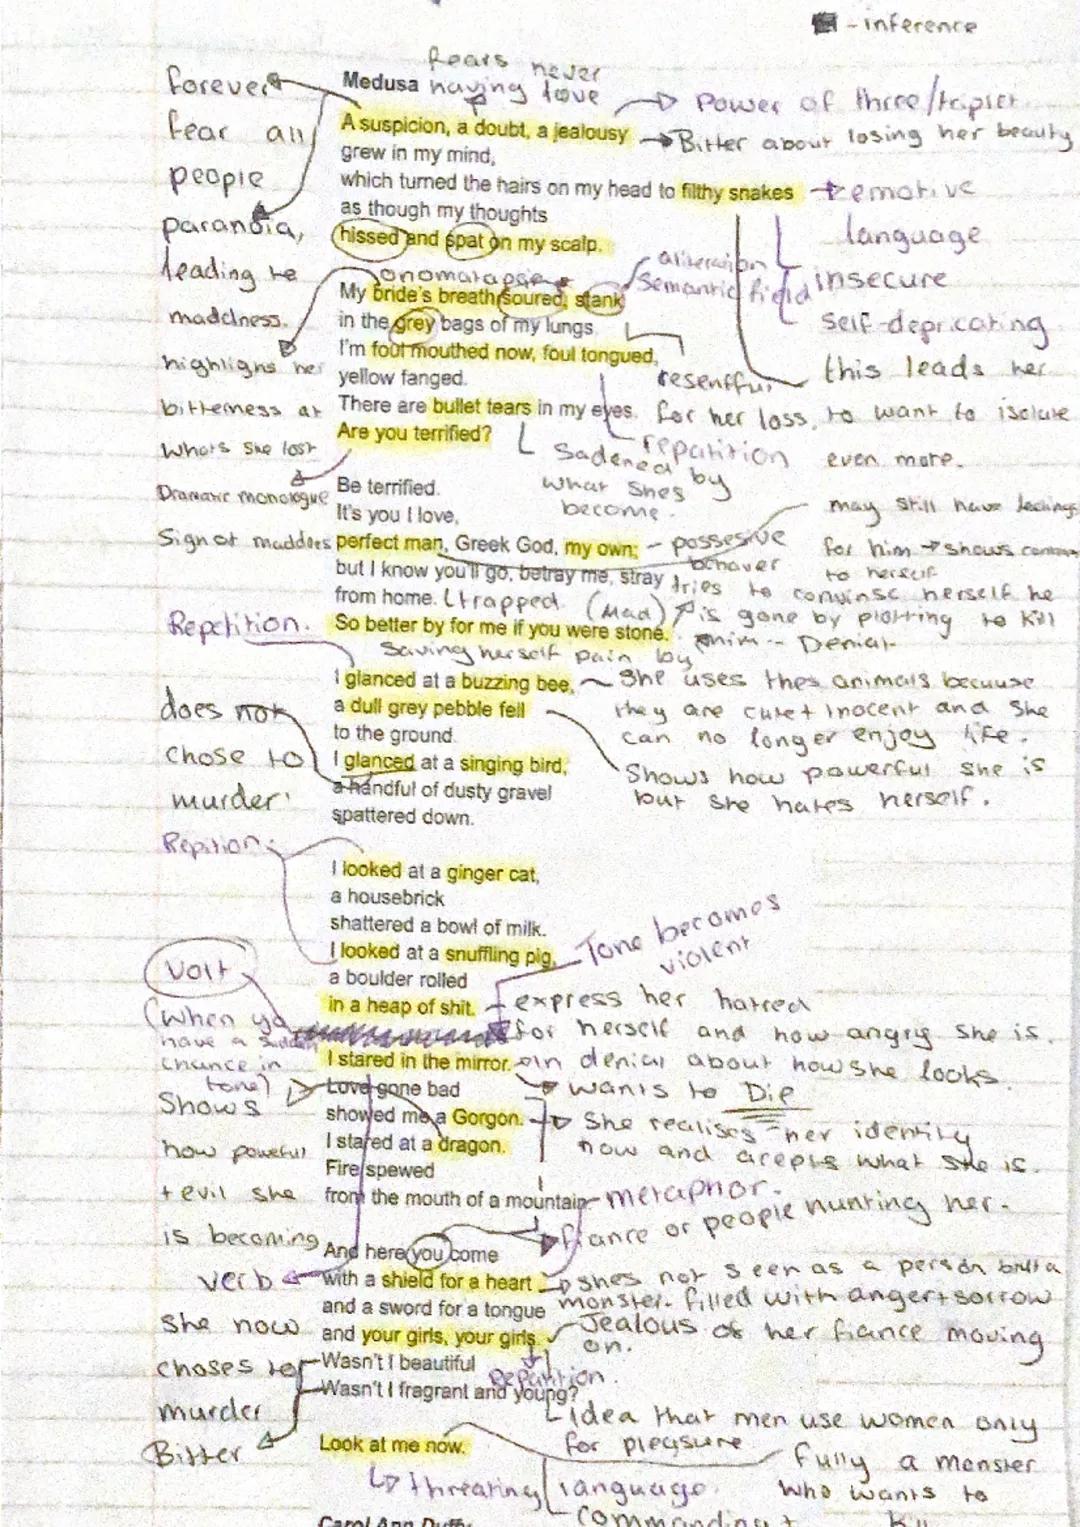 - inference
fears never
having love
forever
fear all
people
paranoia,
leading to
madness.
highlighs her
bitterness at
whats she lost
Dramatic monologue
Sign of maddnes
Repetition.
does not
chose to
murder
Repition
Volt
(When yo
have a sudden
chance in
tone)
Shows
how powerful
+ evil she
is becoming
verb
she now
choses to
murder
Bitter
Medusa
A suspicion, a doubt, a jealousy
grew in my mind,
which turned the hairs on my head to filthy snakes
as though my thoughts
hissed and spat on my scalp.
onomatapoie
My bride's breath soured, stank
in the grey bags of my lungs.
I'm foul mouthed now, foul tongued,
yellow fanged.
There are bullet tears in my eyes.
Are you terrified?
Be terrified.
It's you I love,
perfect man, Greek God, my own;
but I know you'll go, betray me, stray
from home.
So better by for me if you were stone.
I glanced at a buzzing bee,
a dull grey pebble fell
to the ground.
I glanced at a singing bird,
a handful of dusty gravel
spattered down.
I looked at a ginger cat,
a housebrick
shattered a bowl of milk.
I looked at a snuffling pig,
a boulder rolled
in a heap of shit.
I stared in the mirror.
Love gone bad
showed me a Gorgon.
I stared at a dragon.
Fire spewed
from the mouth of a mountain.
And here you come
with a shield for a heart
and a sword for a tongue
and your girls, your girls.
Wasn't I beautiful
Wasn't I fragrant and young?
Look at me now.
Carol Ann Duffy
Power of three/triplet
Bitter about losing her beauty
emotive
language
aliteration
Semantic field
insecure
self-depricating
this leads her
to want to isolate
even more.
resentful
for her loss.
repatition
Sadened by
what shes
become.
may still have feelings
for him → shows
to herself
possesive
behaver
tries to convinse herself he
is gone by plotting to kill
him -- Denial-
(trapped. (Mad)
Saving herself pain by
She uses thes animals becuuse
they are cute + inocent and she
can no longer enjoy life.
Shows how powerful she is
but she hates herself.
Tone becomes
violent
express her hatred
for herself and how angry she is.
in denial about how she looks.
wants to Die
She realises her identity
now and acepts what she is.
metaphor.
fiance or people hunting her.
shes not seen as a person but a
monster. filled with anger + sorrow
Jealous of her fiance moving
on.
Repatition.
Idea that men use women only
for pleasure
fully a monster
who wants to
kill
threating language.
commanding +